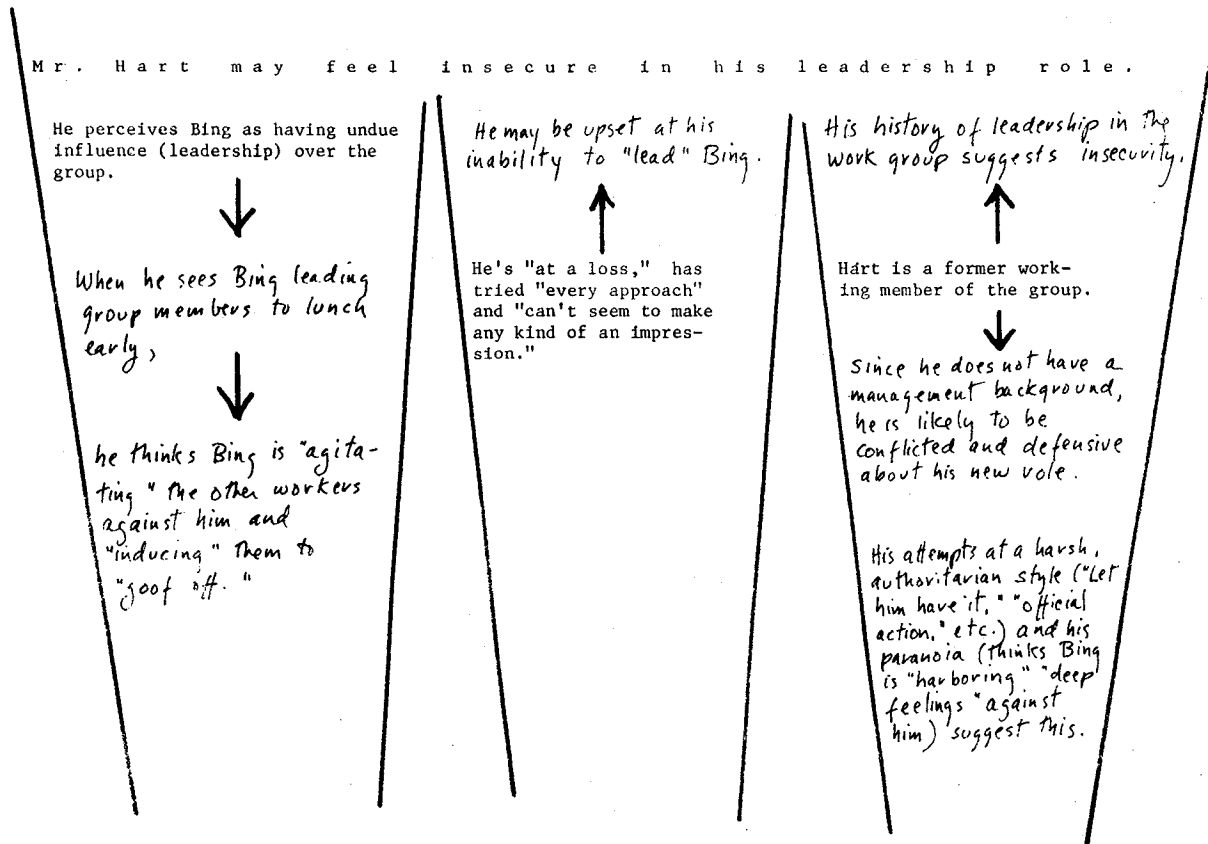 Mr. Hart may feel insecure in his leadership role.
He perceives Bing as having undue
influence (leadership) over the
group.
When he sees Bing leading
group members to lunch
early,
he thinks Bing is "agita-
ting" the other workers
against him and
"inducing" them to
"goof off."
He may be upset at his
inability to "lead" Bing.
He's "at a loss," has
tried "every approach"
and "can't seem to make
any kind of an impres-
sion."
His history of leadership in the
work group suggests insecurity.
Hart is a former work-
ing member of the group.
Since he does not have a
management background,
he is likely to be
conflicted and defensive
about his new role.
His attempts at a harsh,
authoritarian style ("Let
him have it," "official
action," etc.) and his
paranoia (thinks Bing
is "harboring" "deep
feelings" against
him) suggest this.